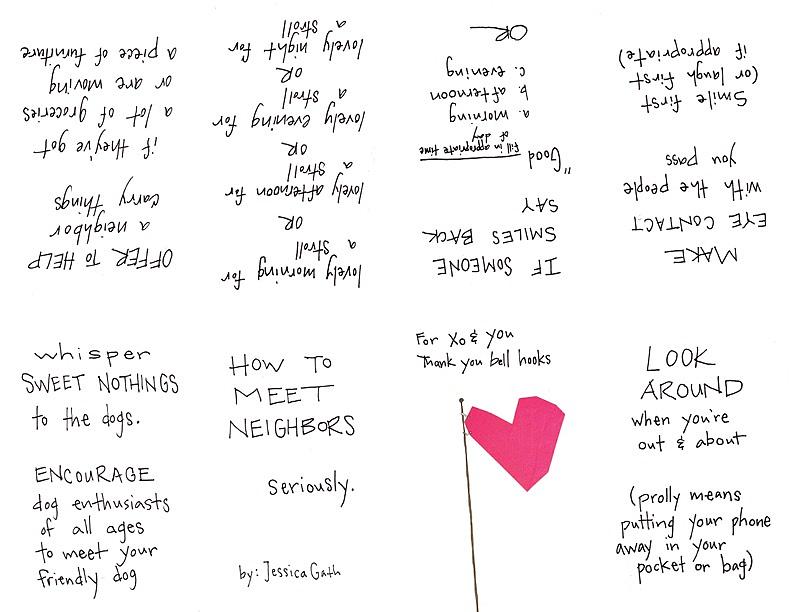 HOW TO
MEET
NEIGHBORS
seriously.
by: Jessica Gath
For Xo & you
Thank you bell hooks
LOOK
AROUND
when you're
out & about
(prolly means
putting your phone
away in your
pocket or bag)
MAKE
EYE CONTACT
with the people
you pass
Smile first
(or laugh first
if appropriate)
IF SOMEONE
SMILES BACK
SAY
"Good
fill in appropriate time
of day
a. morning
b. afternoon
c. evening
OR
lovely morning for
a stroll
OR
lovely afternoon for
a stroll
OR
lovely evening for
a stroll
OR
lovely night for
a stroll
OFFER TO HELP
a neighbor
carry things
if they've got
a lot of groceries
or are moving
a piece of furniture
whisper
SWEET NOTHINGS
to the dogs.
ENCOURAGE
dog enthusiasts
of all ages
to meet your
friendly dog